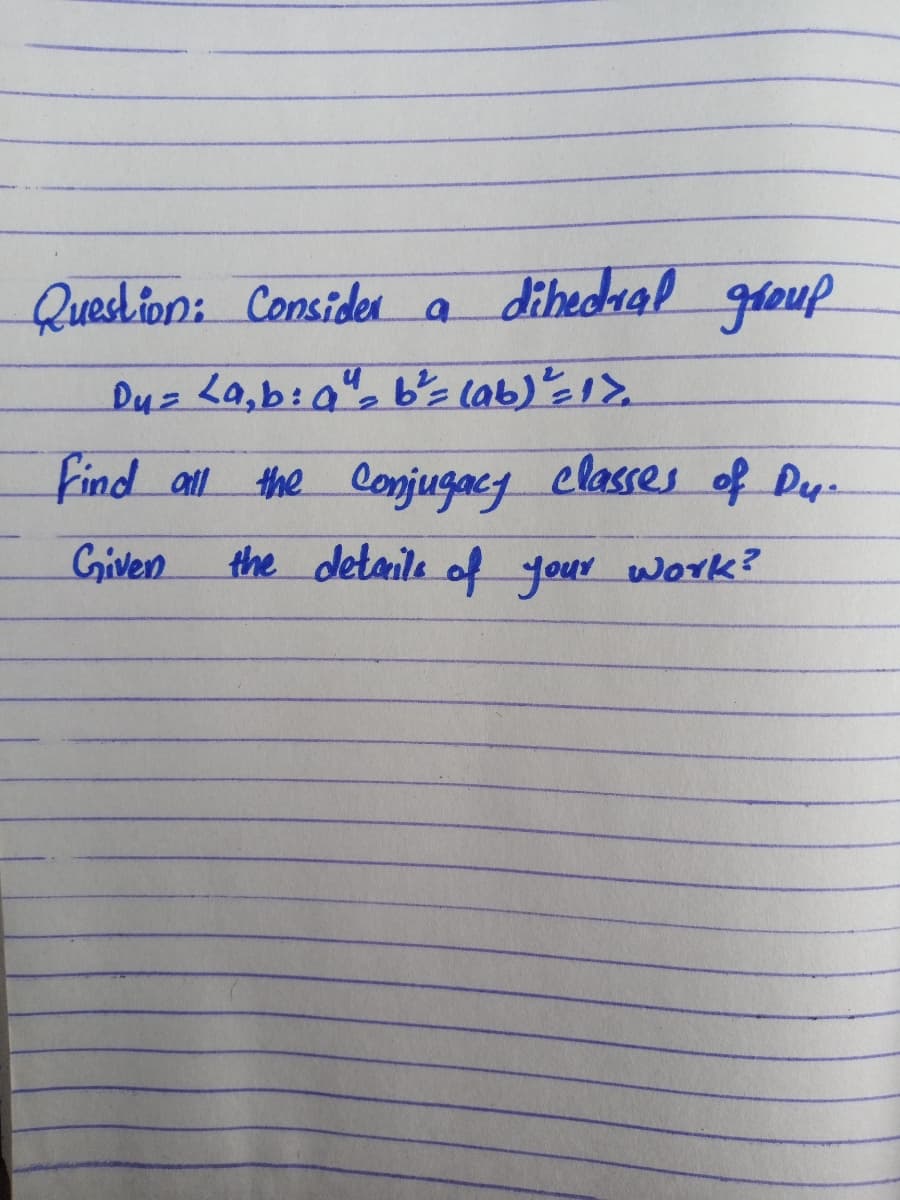 Question: Consider a dihedral group
D₄ = <a,b: a⁴ = b² = (ab)² = 1>.
Find all the Conjugacy classes of D₄.
Given the details of your work?